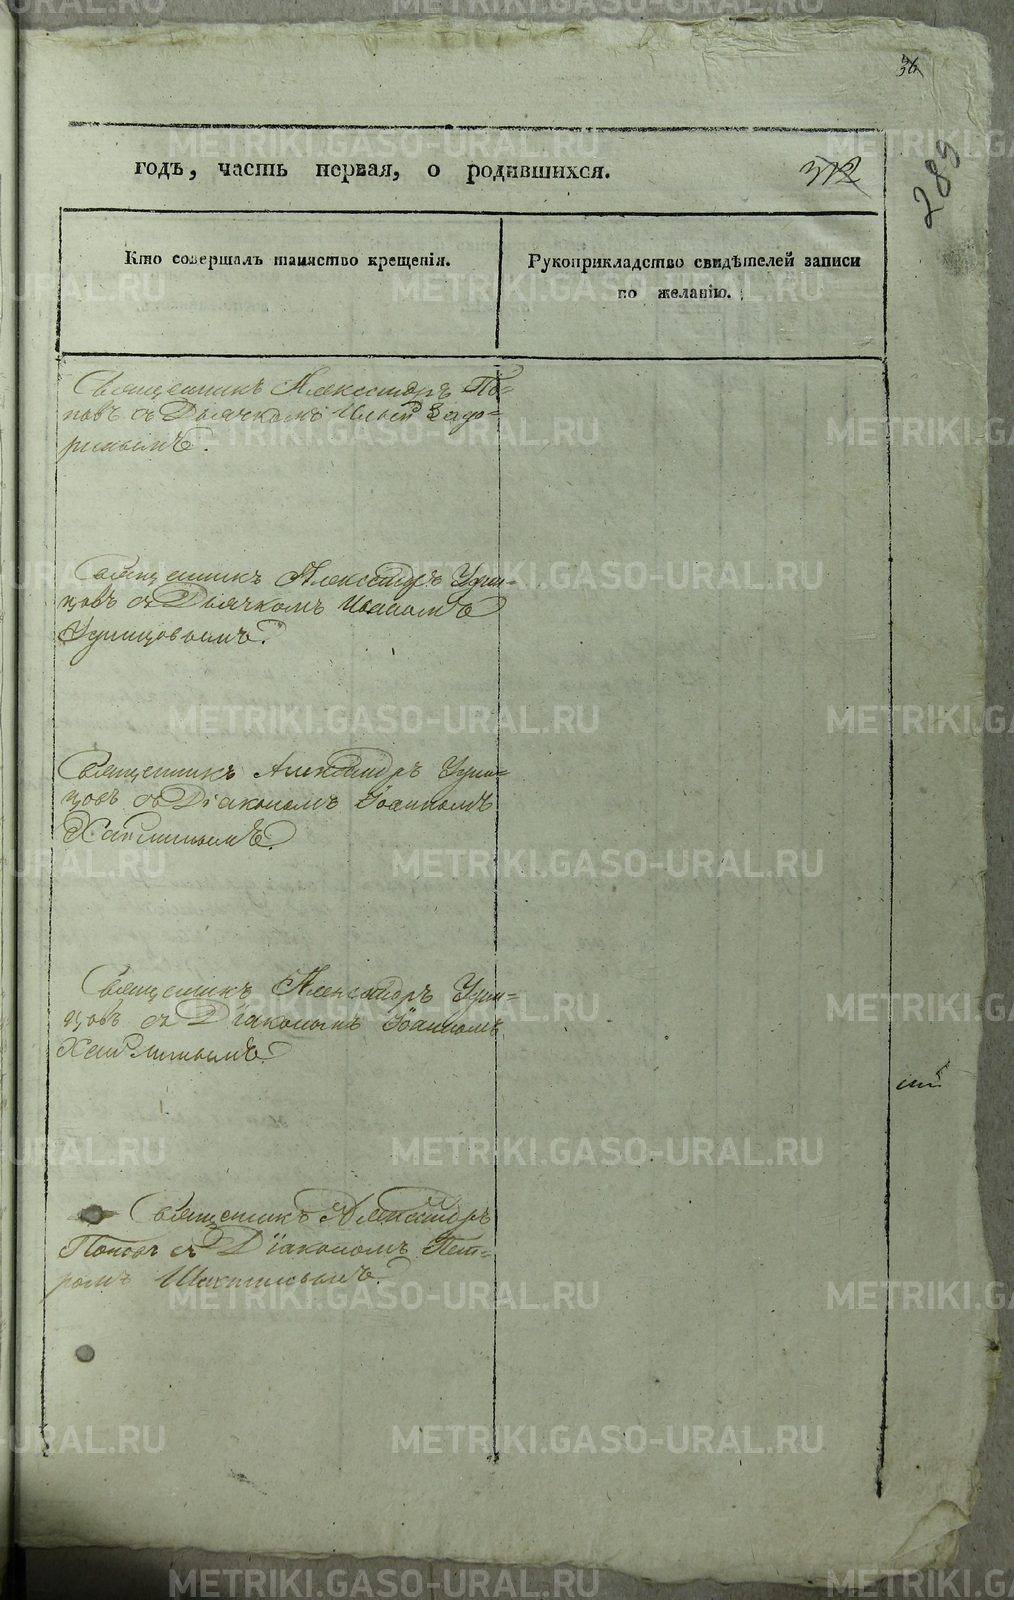 36
289
годъ, часть первая, о родившихся.
312
Кто совершалъ таинство крещенія.
Рукоприкладство свидѣтелей записи
по желанію.
Священникъ Александръ По=
повъ съ Дьячкомъ Ильей
Священникъ Александръ Удин=
цовъ съ Дьячкомъ Иваномъ
Удинцовымъ.
Священникъ Александръ Удин=
цовъ съ Діакономъ Іоанномъ
Священникъ Александръ Удин=
цовъ съ Діакономъ Іоанномъ
Священникъ Александръ
Поповъ съ Діакономъ Пет=
ромъ
METRIKI.GASO-URAL.RU